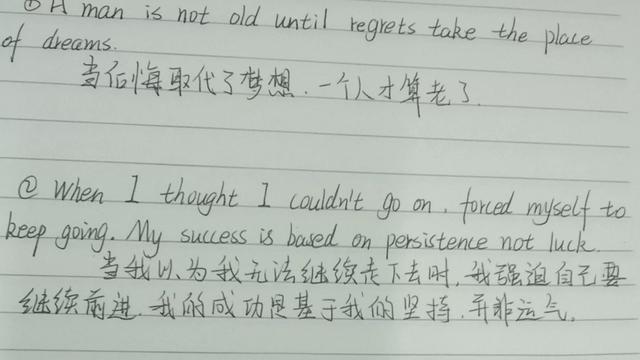 ① A man is not old until regrets take the place
of dreams.
当后悔取代了梦想.一个人才算老了.
② When I thought I couldn't go on, forced myself to
keep going. My success is based on persistence not luck.
当我以为我无法继续走下去时,我强迫自己要
继续前进.我的成功是基于我的坚持,并非运气。